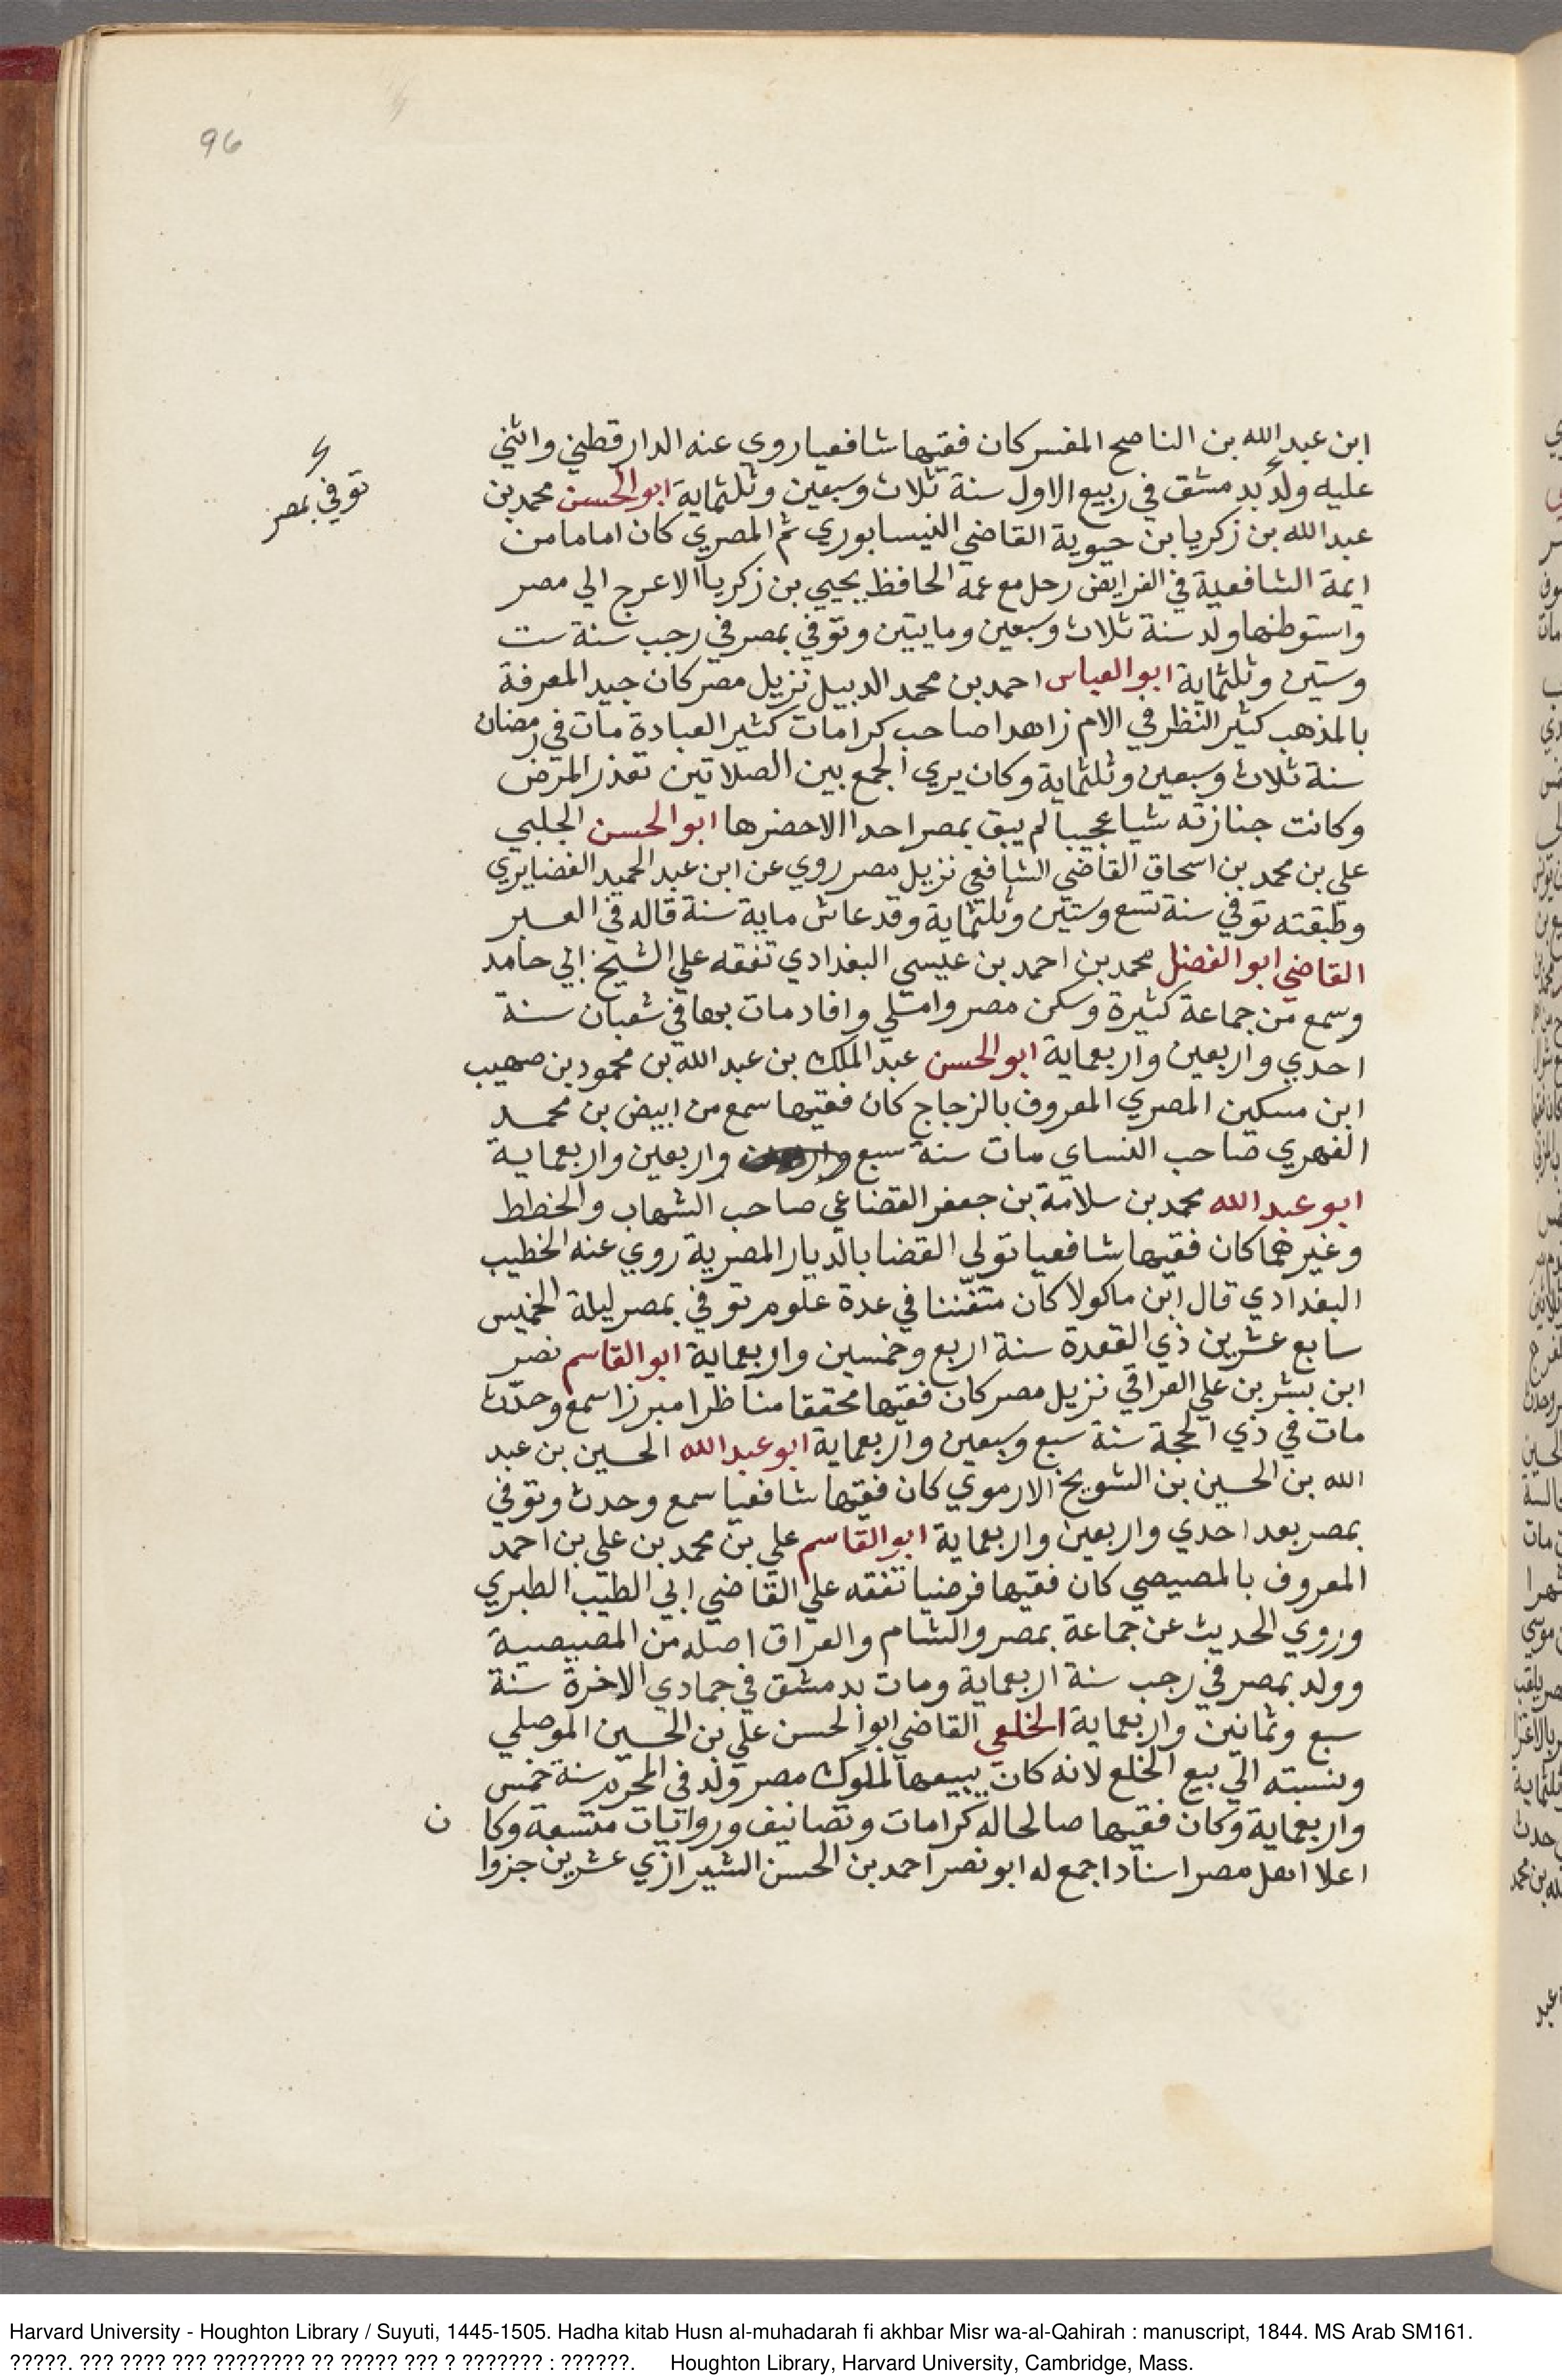 96
ابن عبد الله بن الناصح المفسر كان فقيها شافعيا روي عنه الدارقطني واثني
عليه ولد بدمشق في ربيع الاول سنة ثلاث وسبعين وثلثماية ابو الحسن محمد بن
توفي بمصر
عبد الله بن زكريا بن حيوية القاضي النيسابوري ثم المصري كان اماما من
ايمة الشافعية في الفرايض رحل مع عمه الحافظ يحيي بن زكريا الاعرج الي مصر
واستوطنها ولد سنة ثلاث وسبعين ومايتين وتوفي بمصر في رجب سنة ست
وستين وثلثماية ابو العباس احمد بن محمد الدبيل نزيل مصر كان جيد المعرفة
بالمذهب كثير النظر في الام زاهدا صاحب كرامات كثير العبادة مات في رمضان
سنة ثلاث وسبعين وثلثماية وكان يري الجمع بين الصلاتين تعذر المرض
وكانت جنازته شيا عجيبا لم يبق بمصر احدا الا حضرها ابو الحسن الجلبي
علي بن محمد بن اسحاق القاضي الشافعي نزيل مصر روي عن ابن عبد الحميد الغضايري
وطبقته توفي سنة تسع وستين وثلثماية وقد عاش ماية سنة قاله في العبر
القاضي ابو الفضل محمد بن احمد بن عيسي البغدادي تفقه علي الشيخ ابي حامد
وسمع من جماعة كثيرة وسكن مصر وامتلي وافاد مات بها في شعبان سنة
احدي واربعين واربعماية ابو الحسن عبد الملك بن عبد الله بن محمود بن صهيب
ابن مسكين المصري المعروف بالزجاج كان فقيها سمع من ابيض بن محمد
الفهري صاحب النساي مات سنة سبع واربعين واربعماية
ابو عبد الله محمد بن سلامة بن جعفر القضاعي صاحب الشهاب والخطط
وغيرهما كان فقيها شافعيا تولي القضا بالديار المصرية روي عنه الخطيب
البغدادي قال ابن ماكولا كان متفننا في عدة علوم توفي بمصر ليلة الخميس
سابع عشرين ذي القعدة سنة اربع وخمسين واربعماية ابو القاسم نصر
ابن بشر بن علي العراقي نزيل مصر كان فقيها محققا مناظرا مبرزا سمع وحدث
مات في ذي الحجة سنة سبع وسبعين واربعماية ابو عبد الله الحسين بن عبد
الله بن الحسين بن الشويخ الارموي كان فقيها شافعيا سمع وحدث وتوفي
بمصر بعد احدي واربعين واربعماية ابو القاسم علي بن محمد بن علي بن احمد
المعروف بالمصيصي كان فقيها فرضيا تفقه علي القاضي ابي الطيب الطبري
وروي الحديث عن جماعة بمصر والشام والعراق اصله من المصيصية
وولد بمصر في رجب سنة اربعماية ومات بدمشق في جمادي الاخرة سنة
سبع وثمانين واربعماية الخلعي القاضي ابو الحسن علي بن الحسين الموصلي
ونسبته الي بيع الخلع لانه كان يبيعها لملوك مصر ولد في المحرم سنة خمس
واربعماية وكان فقيها صالحا له كرامات وتصانيف وروايات متسعة وكا ن
اعلا اهل مصر اسنادا جمع له ابو نصر احمد بن الحسن الشيرازي عشرين جزوا
Harvard University - Houghton Library / Suyuti, 1445-1505. Hadha kitab Husn al-muhadarah fi akhbar Misr wa-al-Qahirah : manuscript, 1844. MS Arab SM161.
?????. ??? ???? ??? ???????? ?? ????? ??? ? ??????? : ??????. Houghton Library, Harvard University, Cambridge, Mass.